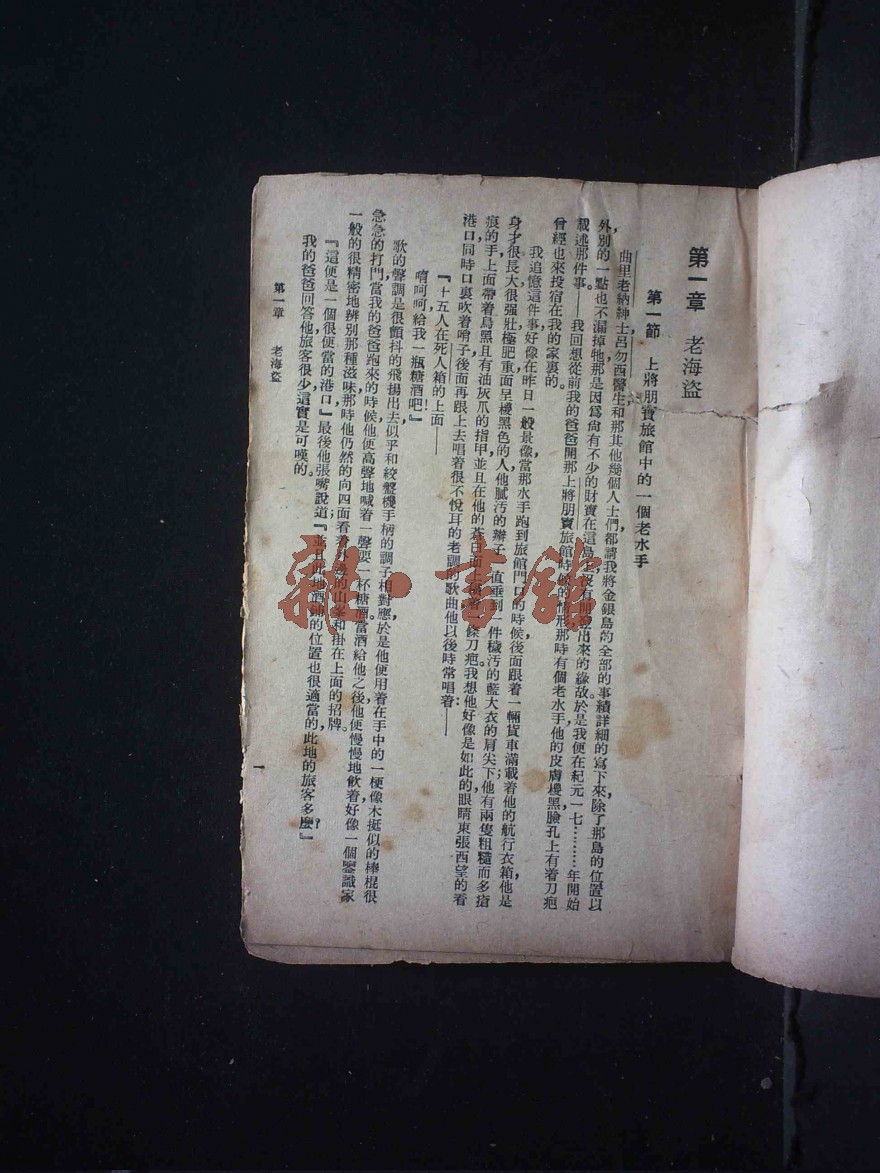 第一章 老海盜
第一節 上將朋寶旅館中的一個老水手
曲里老納紳士呂勿西醫生和那其他幾個人士們都請我將金銀島的全部的事績詳細的寫下來除了那島的位置以
外別的一點也不漏掉牠那是因爲尙有不少的財寶在這島上沒有開發出來的緣故。於是我便在紀元一七………年開始
載述那件事——我回想從前我的爸爸開那上將朋寶旅館時候的情形那時有個老水手他的皮膚褸黑臉孔上有着刀疤
曾經也來投宿在我的家裏的。
我追憶這件事好像在昨日一般景像當那水手跑到旅館門口的時候後面跟着一輛貨車滿載着他的航行衣箱他是
身才很長大很强壯極肥重面呈褸黑色的人他膩汚的辮子一直垂到一件穢汚的藍大衣的肩尖下他有兩隻粗糙而多瘡
痕的手上面帶着烏黑且有油灰爪的指甲並且在他的蒼白面上橫着一條刀疤。我想他好像是如此的眼睛東張西望的看
港口同時口裏吹着哨子後面再跟上去唱着很不悅耳的老調的歌曲他以後時常唱着：——
『十五人在死人箱的上面——
唷呵呵給我一瓶糖酒吧！』
歌的聲調是很顫抖的飛揚出去似乎和絞盤機手柄的調子相對應於是他便用着在手中的一梗像木挺似的棒棍很
急急的打門當我的爸爸跑來的時候他便高聲地喊着一聲要一杯糖酒。當酒給他之後他便慢慢地飲着好像一個鑒識家
一般的很精密地辨別那種滋味那時他仍然的向四面看着外邊的山峯和掛在上面的招牌。
『這便是一個很便當的港口』最後他張嘴說道；『並且此地酒鋪的位置也很適當的此地的旅客多麼？』
我的爸爸回答他旅客很少這實是可嘆的。
第一章 老海盜
一
雜·書館